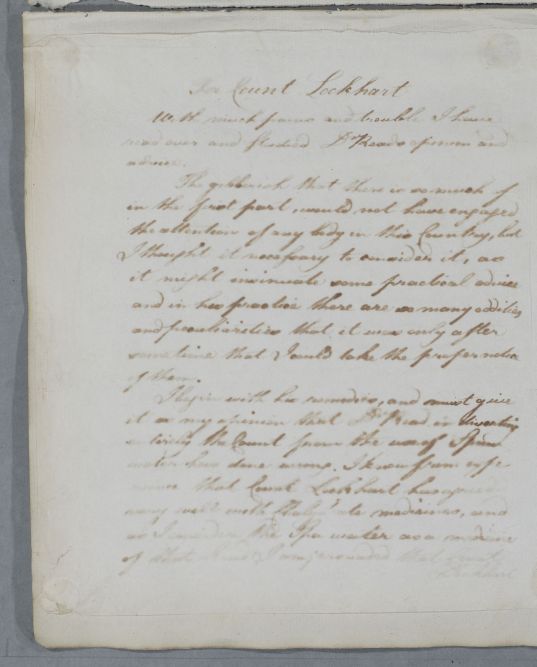 For Count Lockhart
With much pains and trouble I have
read over and studied Dr. Reads opinion and
advice.
The gibberish that there is so much of
in the first part, would not have engaged
the attention of any body in this Country, but
I thought it necessary to consider it, as
it might insinuate some practical advice
and in his practice there are so many oddities
and peculiarities that it was only after
sometime that I could take the proper notice
of them.
I begin with his remedies, and must give
it as my opinion that Dr. Read in diverting
entirely the Count from the use of Spaw
water has done wrong. I know from expe
rience that Count Lockhart has agreed
very well with Chalybeate medicines, and
as I consider the Spa water as a medicine
of that kind I am persuaded that Count
Lockhart